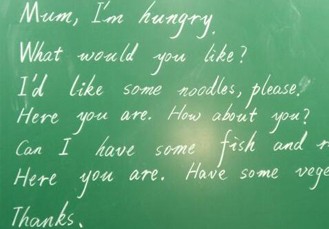 Mum, I'm hungry.
What would you like?
I'd like some noodles, please.
Here you are. How about you?
Can I have some fish and
Here you are. Have some
Thanks.